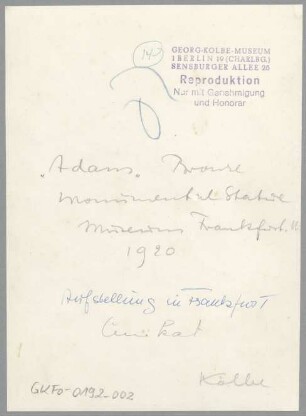 140
GEORG-KOLBE-MUSEUM
1 BERLIN 19 (CHARLBG.)
SENSBURGER ALLEE 25
Reproduktion
Nur mit Genehmigung
und Honorar
„Adam" Bronze
Monumental Statue
Museum Frankfurt
1920
Aufstellung in Frankfurt
Unikat
Kolbe
GKFo-0192_002